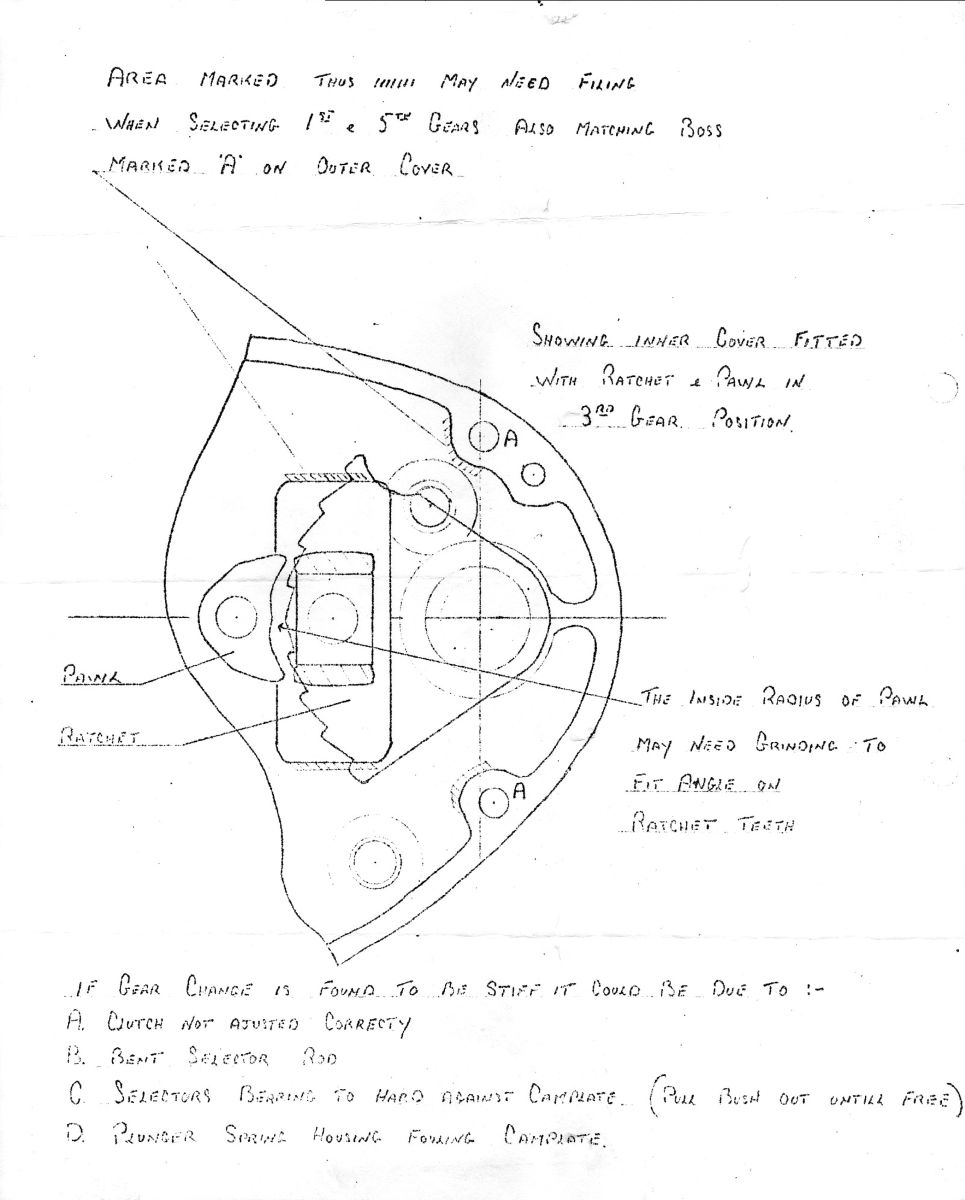 AREA MARKED THUS ////// MAY NEED FILING
WHEN SELECTING 1ST & 5TH GEARS ALSO MATCHING BOSS
MARKED 'A' ON OUTER COVER
SHOWING INNER COVER FITTED
WITH RATCHET & PAWL IN
3RD GEAR POSITION.
A
PAWL
RATCHET
THE INSIDE RADIUS OF PAWL
MAY NEED GRINDING TO
FIT ANGLE ON
RATCHET TEETH
A
IF GEAR CHANGE IS FOUND TO BE STIFF IT COULD BE DUE TO :-
A. CLUTCH NOT AJUSTED CORRECTY
B. BENT SELECTOR ROD
C. SELECTORS BEARING TO HARD AGAINST CAMPLATE. (PULL BUSH OUT UNTILL FREE)
D. PLUNGER SPRING HOUSING FOULING CAMPLATE.